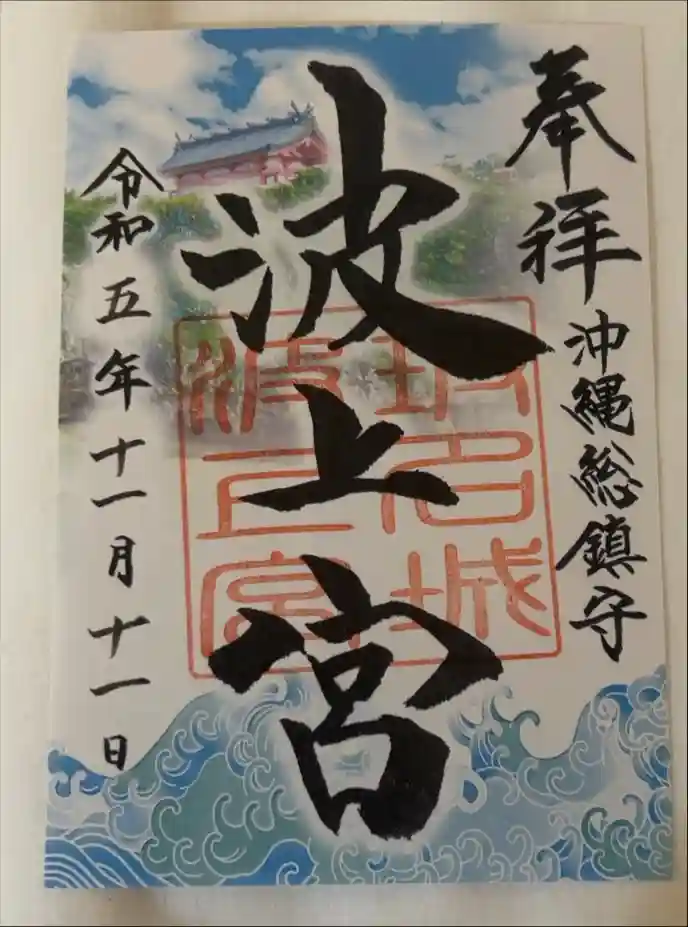 奉拝
沖縄総鎮守
波上宮
玻名城
波上宮
令和五年十一月十一日